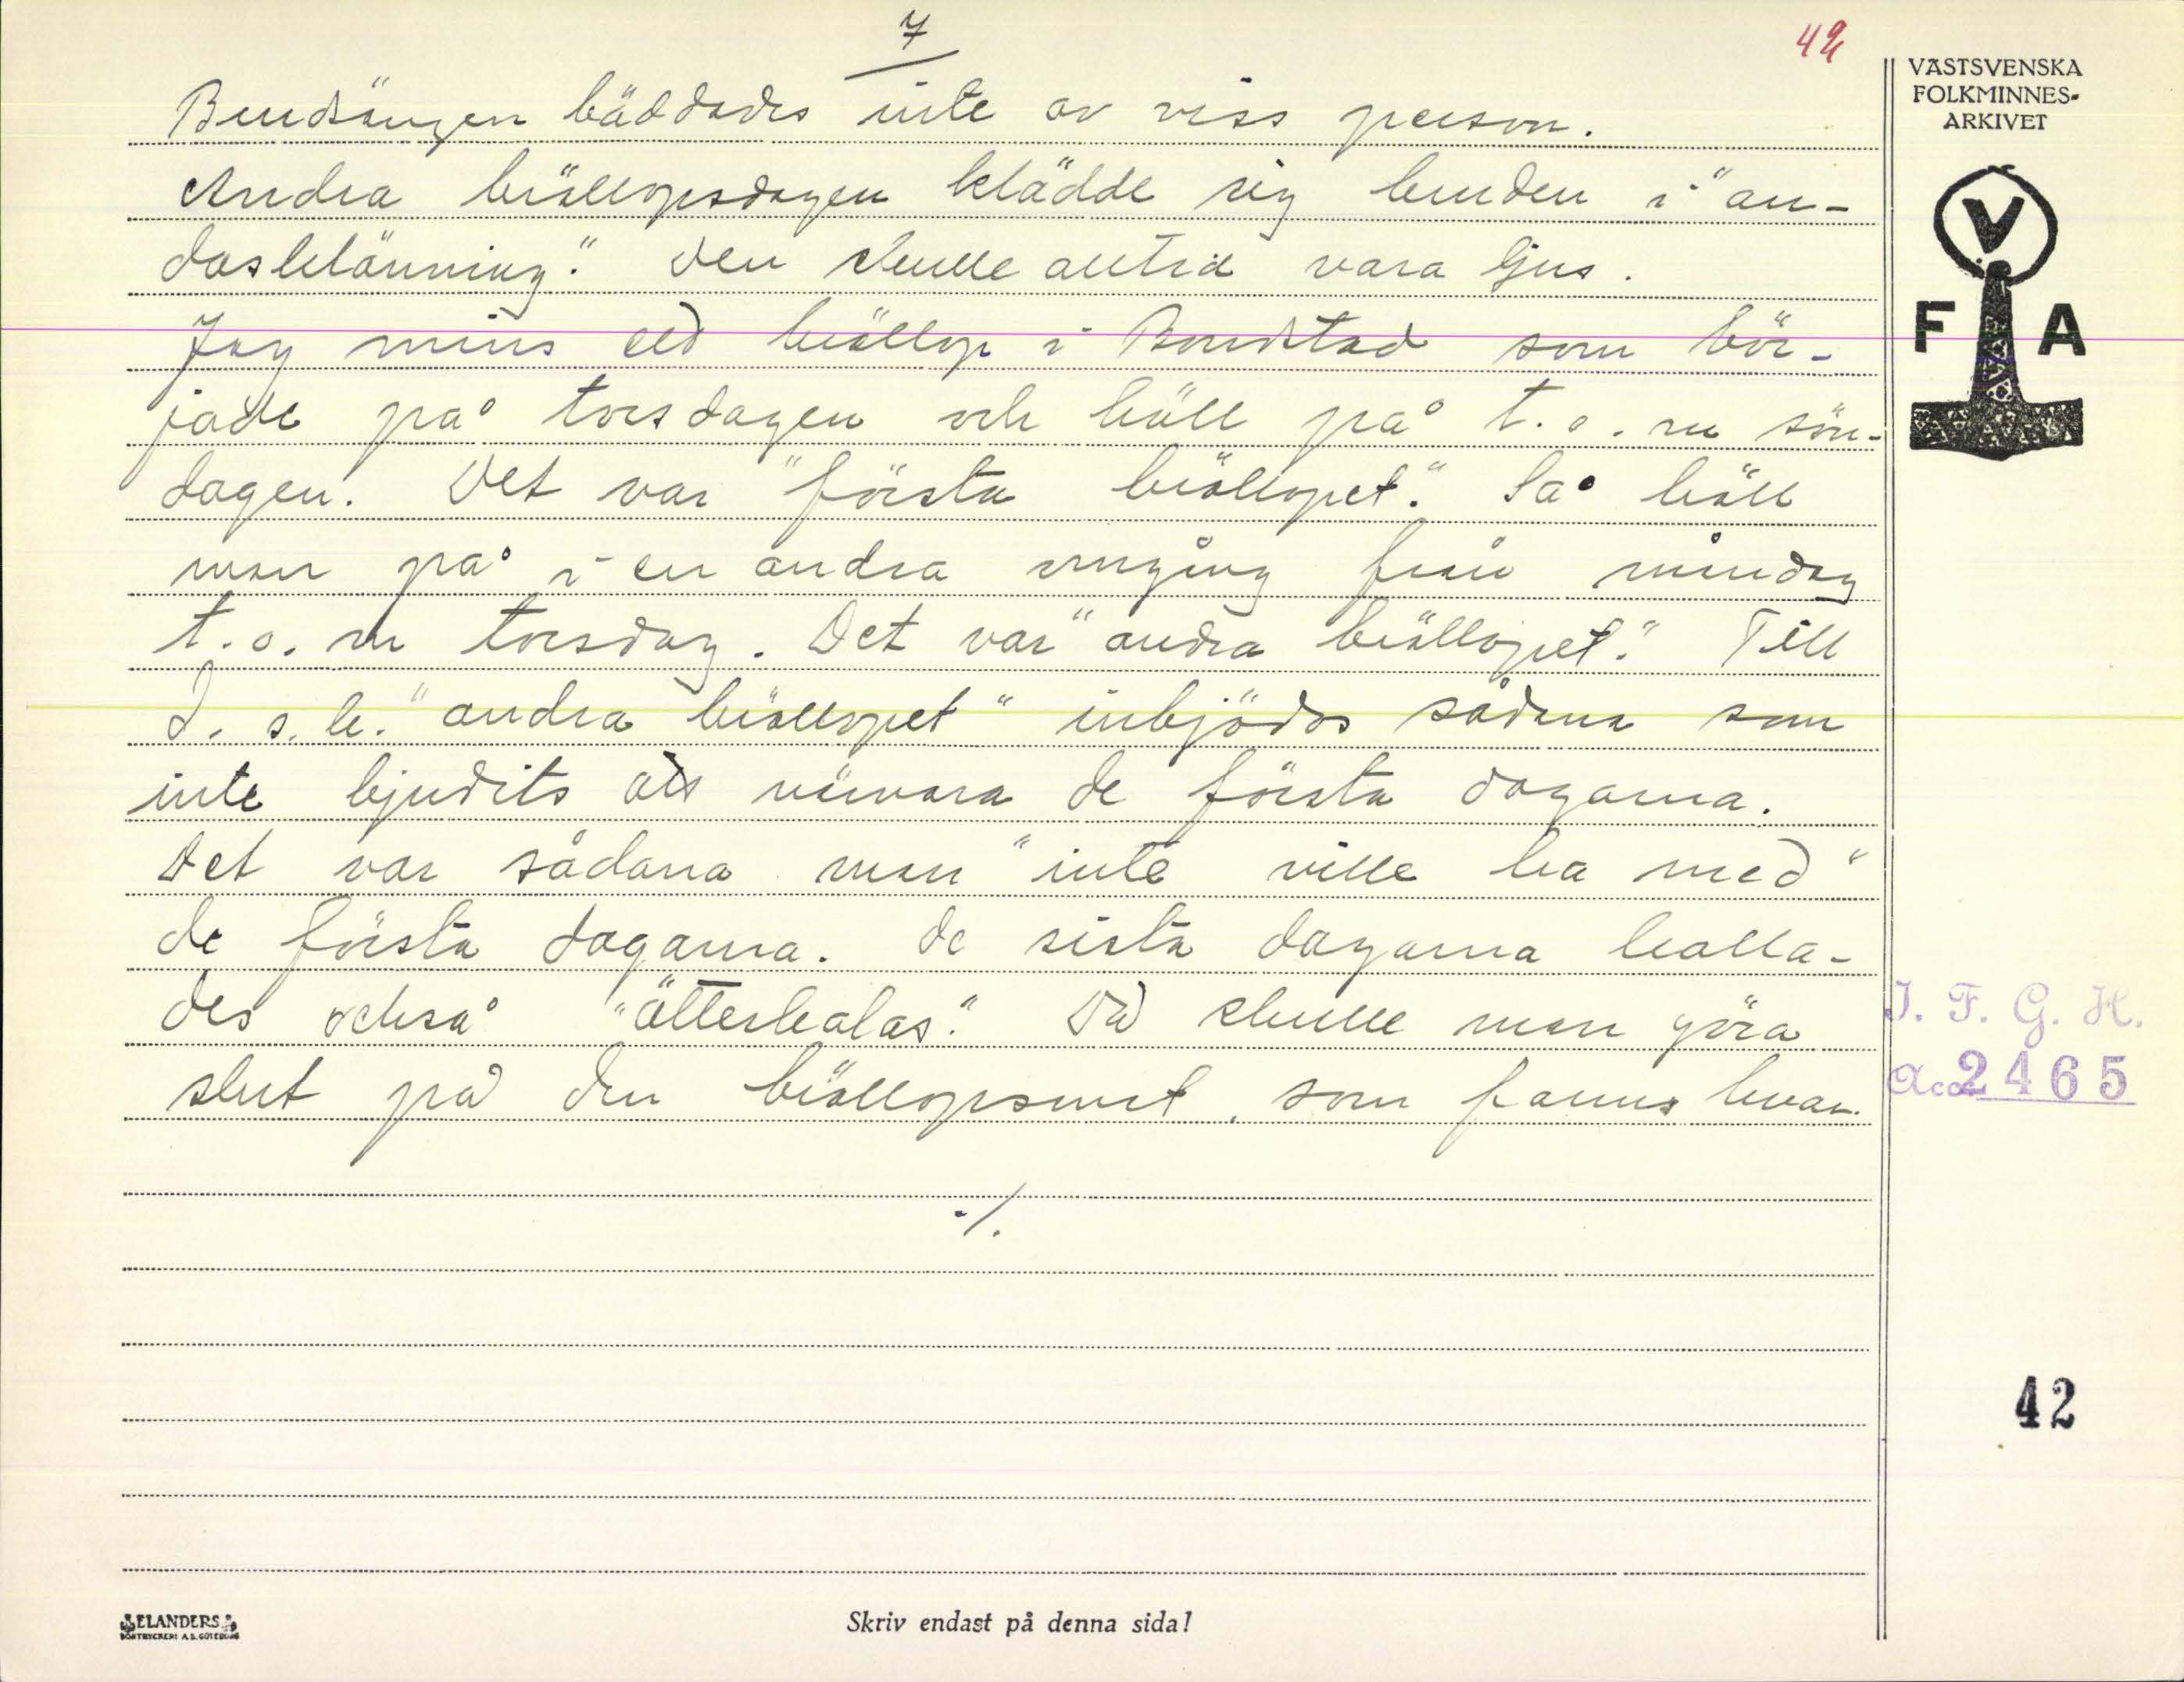 7
42
VÄSTSVENSKA
FOLKMINNES-
ARKIVET
V
F A
Brudsängen bäddades inte av viss person.
Andra bröllopsdagen klädde sig bruden i "an-
dasklänning". Den skulle alltid vara ljus.
Jag mins ett bröllop i Bondstad som bör-
jade på torsdagen och höll på t.o.m sön-
dagen. Det var "första bröllopet". Så höll
man på i en andra omgång från måndag
t.o.m torsdag. Det var "andra bröllopet". Till
d.s.k. "andra bröllopet" inbjödos sådana som
inte bjudits att närvara de första dagarna.
Det var sådana man "inte ville ha med"
de första dagarna. De sista dagarna kalla-
des också "ätterkalas". Då skulle man göra
slut på den bröllopsmat, som fanns kvar.
./.
I. F. G. H.
Acc 2465
42
ELANDERS
BOKTRYCKERI A.B. GÖTEBORG
Skriv endast på denna sida!